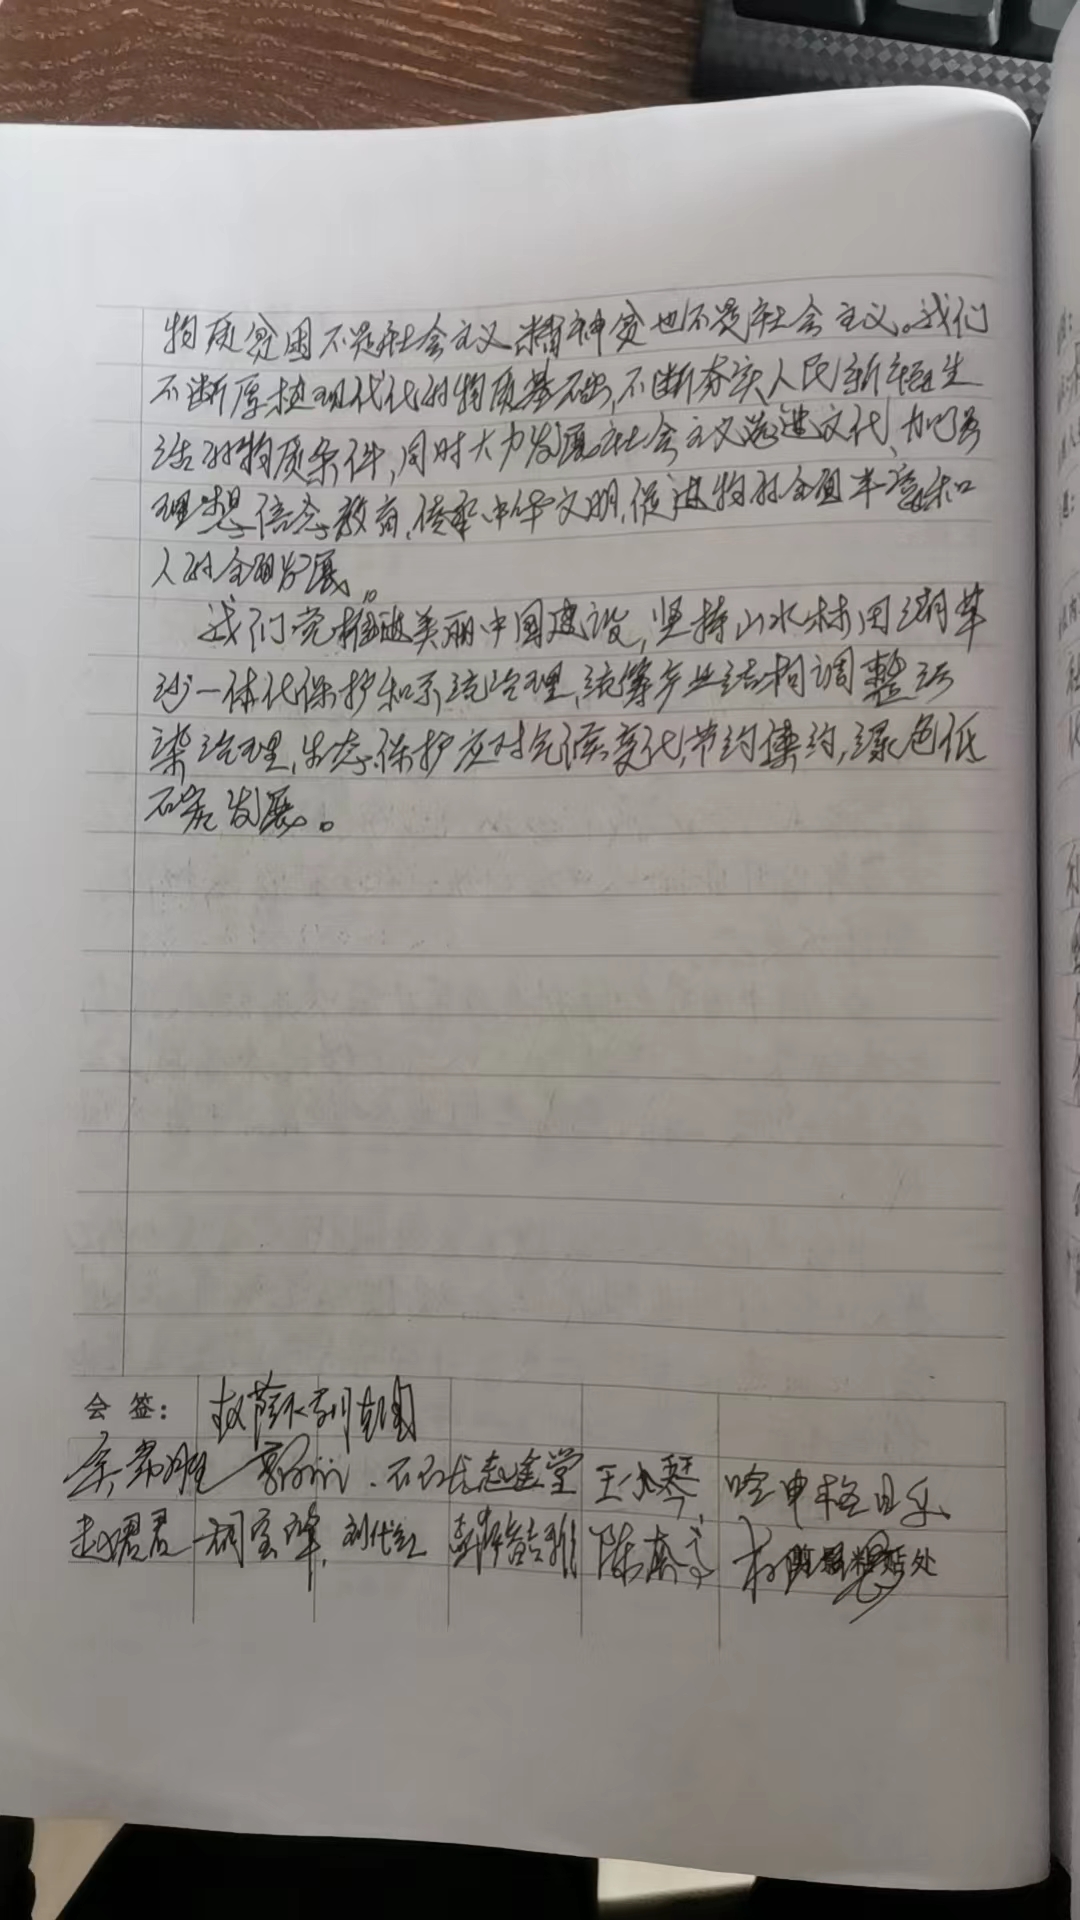 物质贫困不是社会主义,精神贫也不是社会主义。我们
不断厚植现代化的物质基础,不断夯实人民新福生
活的物质条件,同时大力发展社会主义先进文化,加强
理想信念教育,传承中华文明,促进物的全面丰富和
人的全面发展。
我们党推进美丽中国建设,坚持山水林田湖草
沙一体化保护和系统治理,统筹产业结构调整污
染治理,生态保护应对气候变化,节约集约,绿色低
碳发展。
会签:
赵建堂 王小琴 哈申格日乐
赵君君 胡宝峰 刘代红
剪辑